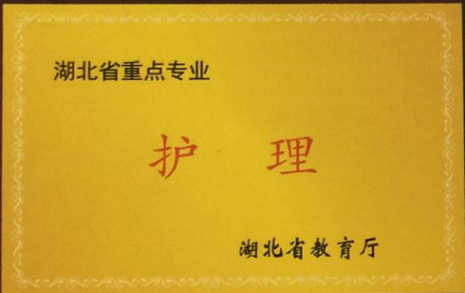 湖北省重点专业
护 理
湖北省教育厅